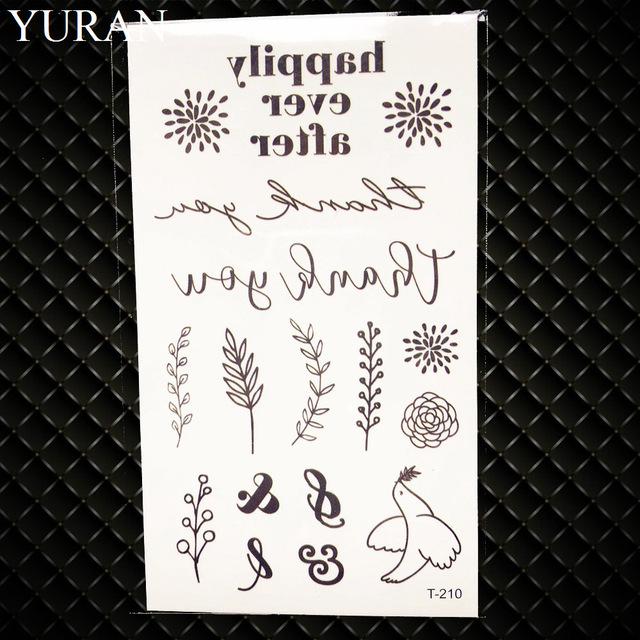 YURAN
happily
ever
after
thank you
Thank you
& &
& &
T-210